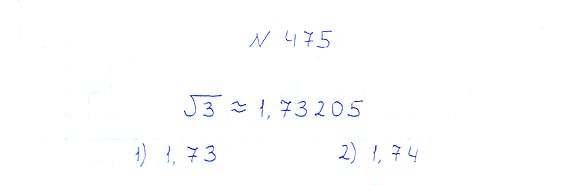 N 475
√3 ≈ 1,73205
1) 1,73 2) 1,74